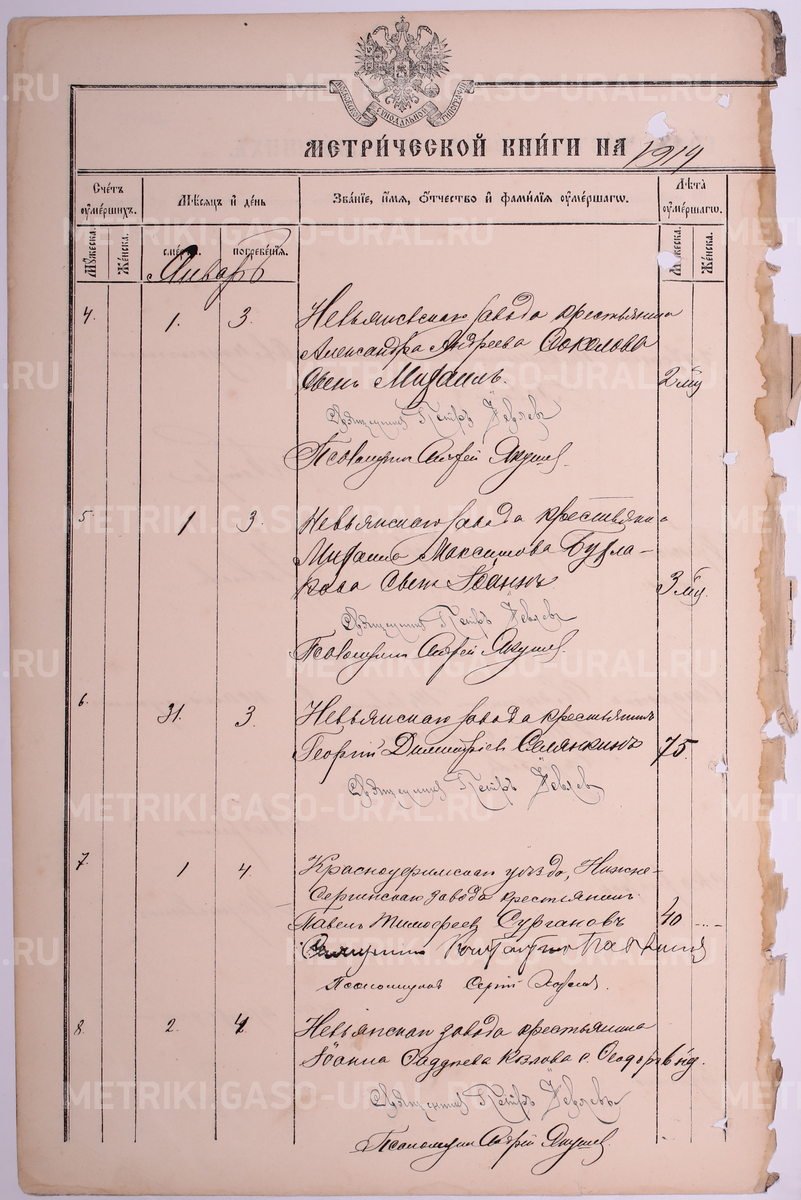 МОСКОВСКОЙ СѴНОДАЛЬНОЙ ТИПОГРАФІИ
МЕТРИ́ЧЕСКОЙ КНИ́ГИ НА 1914
Счетъ ᲂу҆ме́ршихъ.
Мѣ́сяцъ и҆ де́нь
Зва́нїе, и҆́мя, ѻ҆́тчество и҆ фами́лїя ᲂу҆ме́ршагѡ.
Лѣ̑та ᲂу҆ме́ршагѡ.
Мꙋ́жеска.
Же́нска.
сме́рти.
погребе́нїя.
Мꙋ́жеска.
Же́нска.
Январь
4. 1. 3. Невьянскаго завода крестьянина
Александра Андреева Соколова
сынъ Михаилъ. 2 мц
Священникъ Петръ
Псаломщикъ Андрей Якушев.
5 1 3. Невьянскаго завода крестьянина
Михаила Максимова Бурла-
кова сынъ Іоаннъ. 3 мц.
Священникъ Петръ
Псаломщикъ Андрей Якушев.
6. 31. 3. Невьянскаго завода крестьянинъ
Георгій Димитріевъ Селянкинъ 75.
Священникъ Петръ
7. 1 4. Красноуфимскаго уѣзда, Нижне-
Сергинскаго завода крестьянинъ
Павелъ Тимофеев Сургановъ 40
Священникъ Константинъ
Псаломщикъ Сергій
8. 2. 4 Невьянскаго завода крестьянина
Іоанна Фаддѣева Козлова с. Ѳеодоръ нд.
Священникъ Петръ
Псаломщикъ Андрей Якушев
METRIKI.GASO-URAL.RU